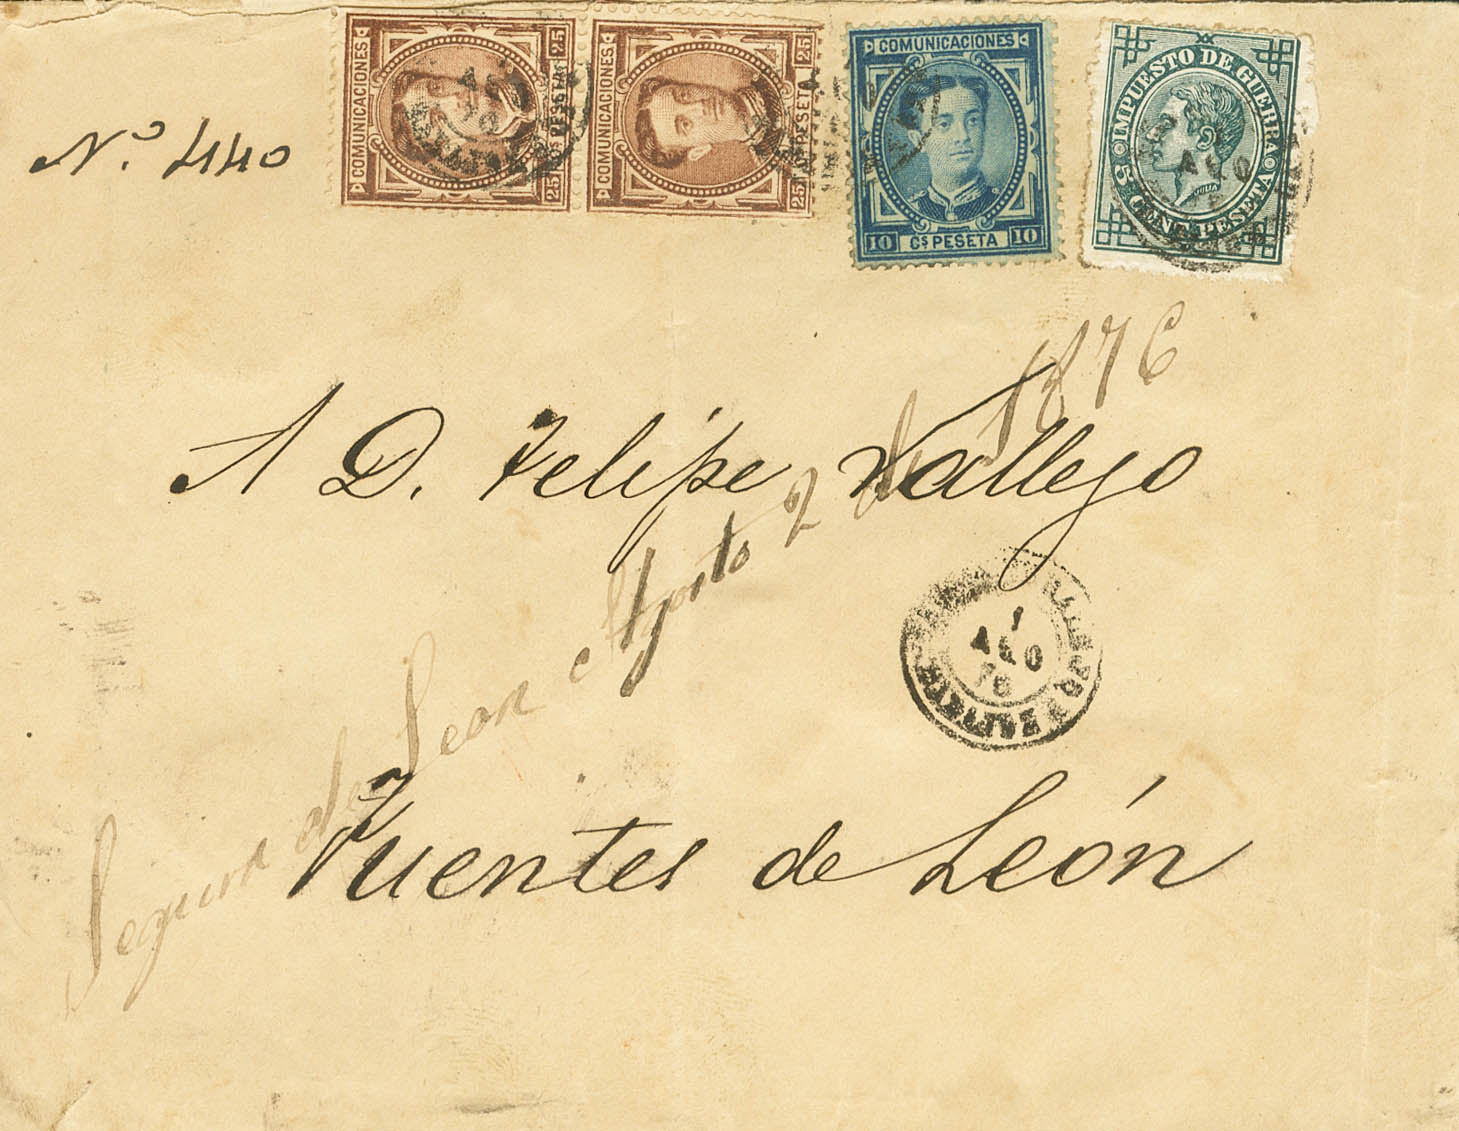 COMUNICACIONES
25 Cs PESETA 25
COMUNICACIONES
25 Cs PESETA 25
COMUNICACIONES
10 Cs PESETA 10
IMPUESTO DE GUERRA
5 CENT. PESETA
JULIA
AGO
76
AGO
Nº 440
A D. Felipe Vallejo
1
AGO
76
Fuentes de León
Segura de Leon Agosto 2 de 1876